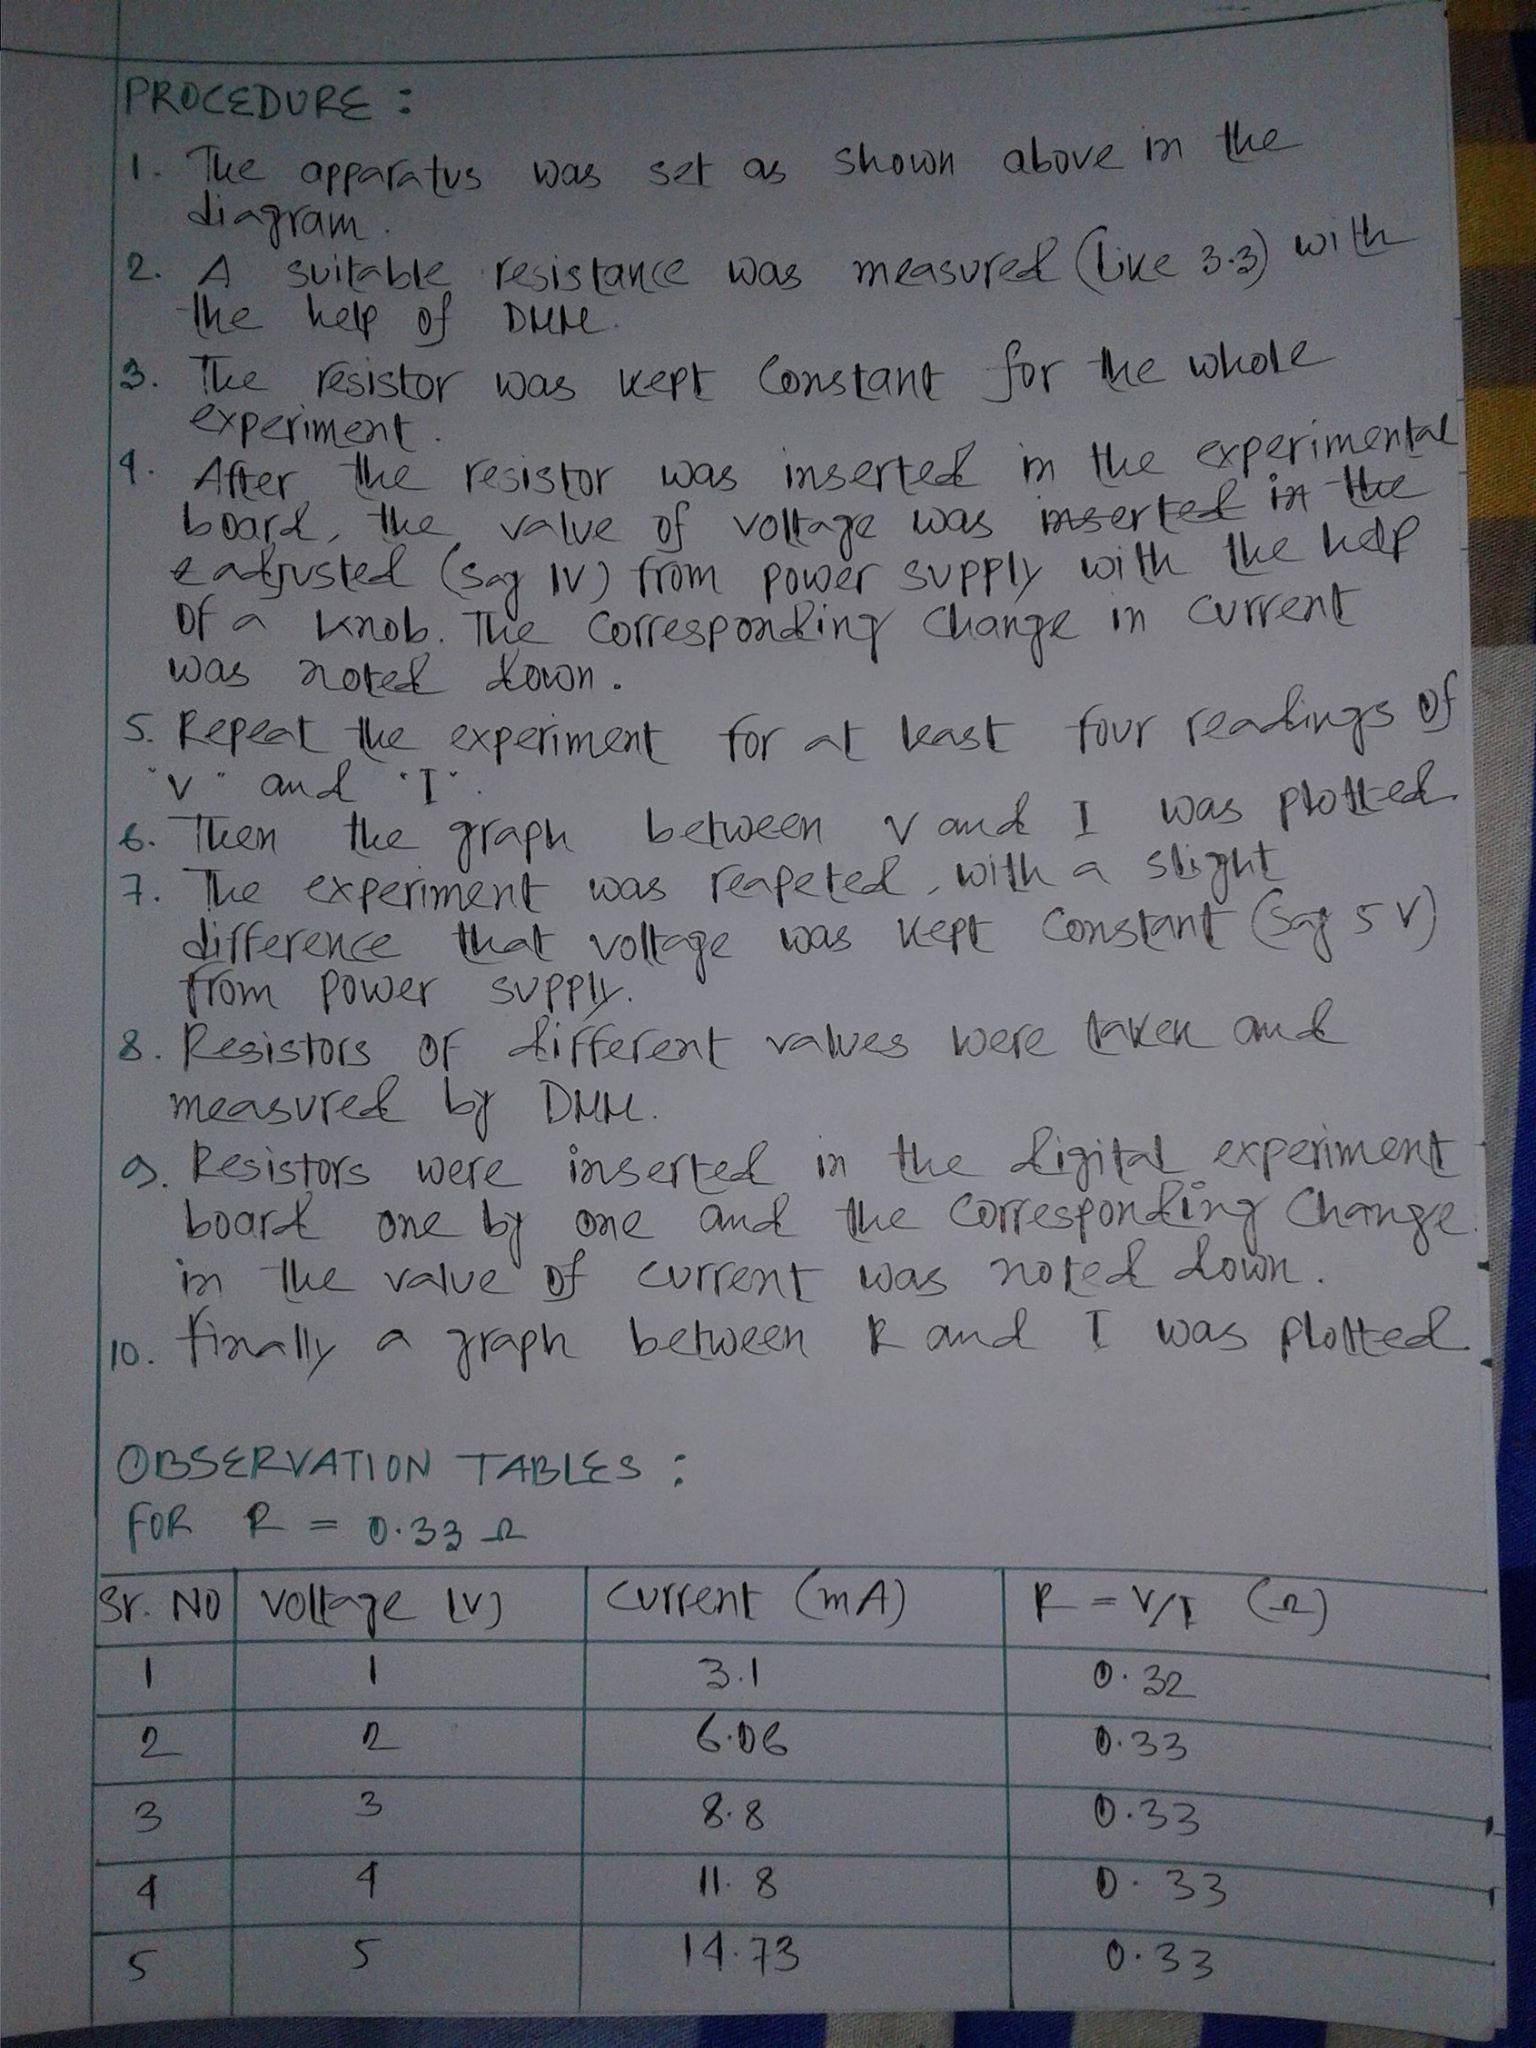 PROCEDURE :
1. The apparatus was set as shown above in the
diagram.
2. A suitable resistance was measured (like 3.3) with
the help of DMM.
3. The resistor was kept constant for the whole
experiment.
4. After the resistor was inserted in the experimental
board, the value of voltage was inserted in the
& adjusted (say 1V) from power supply with the help
of a knob. The corresponding change in current
was noted down.
5. Repeat the experiment for at least four readings of
"V" and "I".
6. Then the graph between V and I was plotted
7. The experiment was reapeted, with a slight
difference that voltage was kept constant (say 5 V)
from power supply.
8. Resistors of different values were taken and
measured by DMM.
9. Resistors were inserted in the digital experiment
board one by one and the corresponding change
in the value of current was noted down.
10. Finally a graph between R and I was plotted
OBSERVATION TABLES :
FOR R = 0.33 Ω
Sr. NO Voltage (V) Current (mA) R = V/I (Ω)
1 1 3.1 0.32
2 2 6.06 0.33
3 3 8.8 0.33
4 4 11.8 0.33
5 5 14.73 0.33